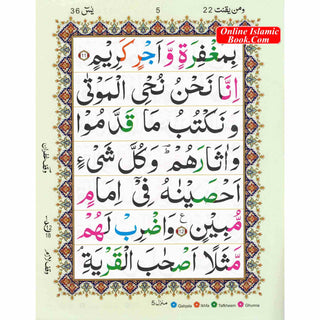 یٰسٓ 36
5
ومن یقنت 22
Online Islamic
Book.Com
بِمَغْفِرَةٍ وَّ اَجْرٍ كَرِیْمٍ ۝۱۱
اِنَّا نَحْنُ نُحْیِ الْمَوْتٰى
وَ نَكْتُبُ مَا قَدَّمُوْا
وَ اٰثَارَهُمْ ؕ وَ كُلَّ شَیْءٍ
اَحْصَیْنٰهُ فِیْۤ اِمَامٍ
مُّبِیْنٍ ۝۱۲ ع وَ اضْرِبْ لَهُمْ
مَّثَلًا اَصْحٰبَ الْقَرْیَةِ ۘ
منزل 5
Qalqala
Ikhfa
Tafkheem
Ghunna